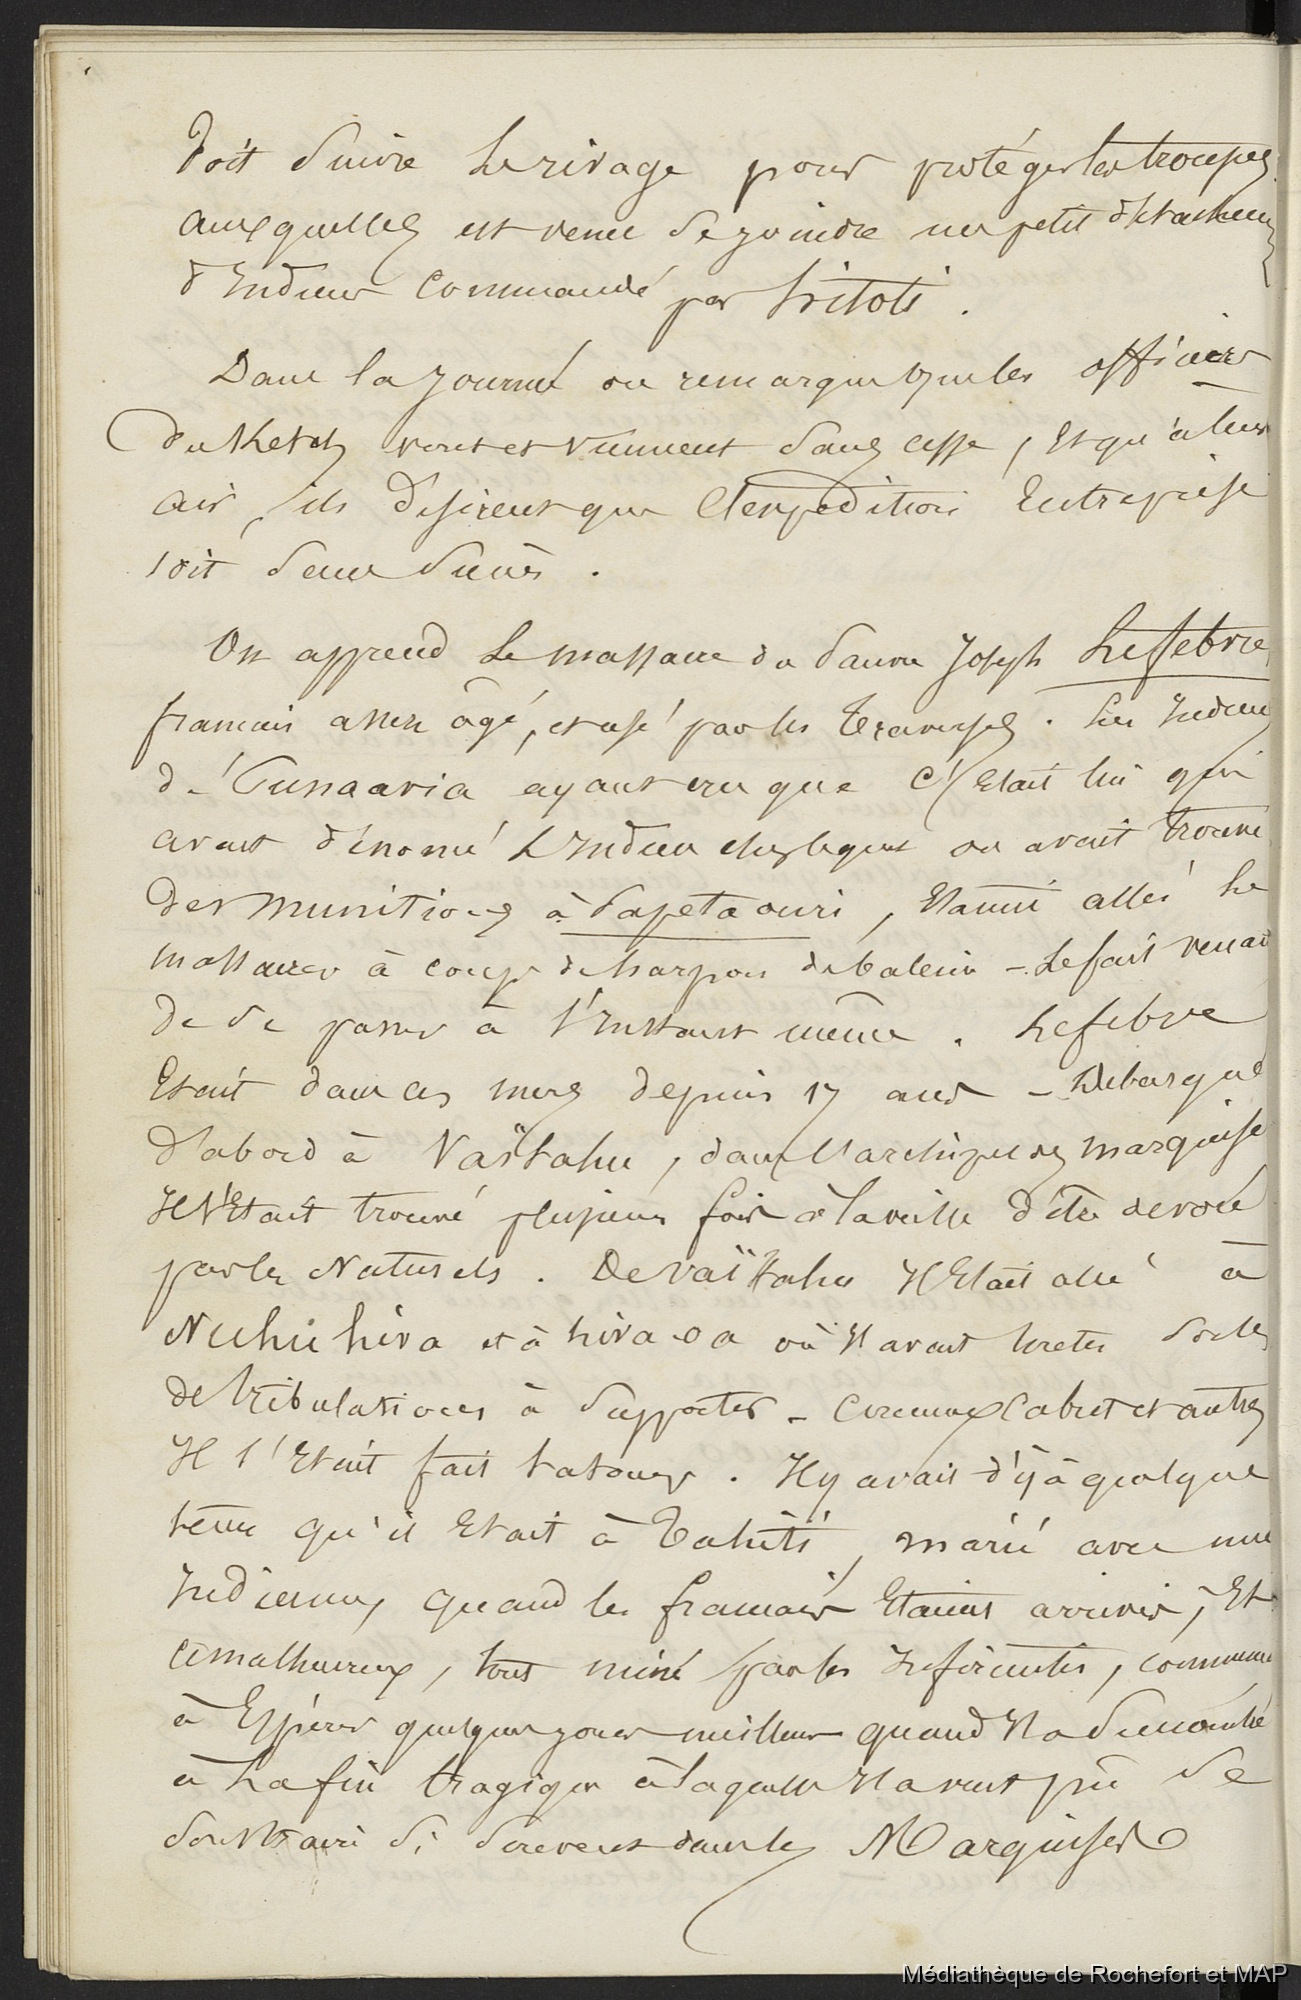 doit suivre le rivage pour protéger les troupes
auxquelles est venu se joindre un petit détachem
d'Indiens commandé par tritoti.
Dans la journée on remarque que les officiers
du Ketch vont et viennent sans cesse, et qu'à leur
air, ils désirent que l'expédition Entreprise
soit sans succès.
On apprend le massacre du pauvre Joseph Lefebvre
français assez âgé, et usé par les traverses. Les Indiens
de Punaavia ayant cru que c'Etait lui qui
avait dénoncé L'Indien chez lequel on avait trouvé
des munitions à Papetaouri, Etaient allés le
massacrer à coups de harpon de baleine - le fait venait
de se passer à l'Instant même. Lefebvre
Etait dans ces mers depuis 17 ans - Debarqué
d'abord à Vaïtahu, dans l'archipel des marquises
Il s'Etait trouvé plusieurs fois à la veille d'être dévoré
par les Naturels. De Vaïtahu Il Etait allé à
Nuhuhiva et à hiva-oa où Il avait toutes sortes
de tribulations à supporter - comme Cabret et autres
Il s'Etait fait tatouer. Il y avait déjà quelque
tems qu'il Etait à Tahiti, marié avec une
Indienne, quand les français Etaient arrivés, Et
ce malheureux, tout miné par les Infirmités, commen
à Espérer quelques jours meilleurs quand Il a succombé
à La fin tragique à laquelle Il avait pu se
soustraire si souvent dans les Marquises
Médiathèque de Rochefort et MAP